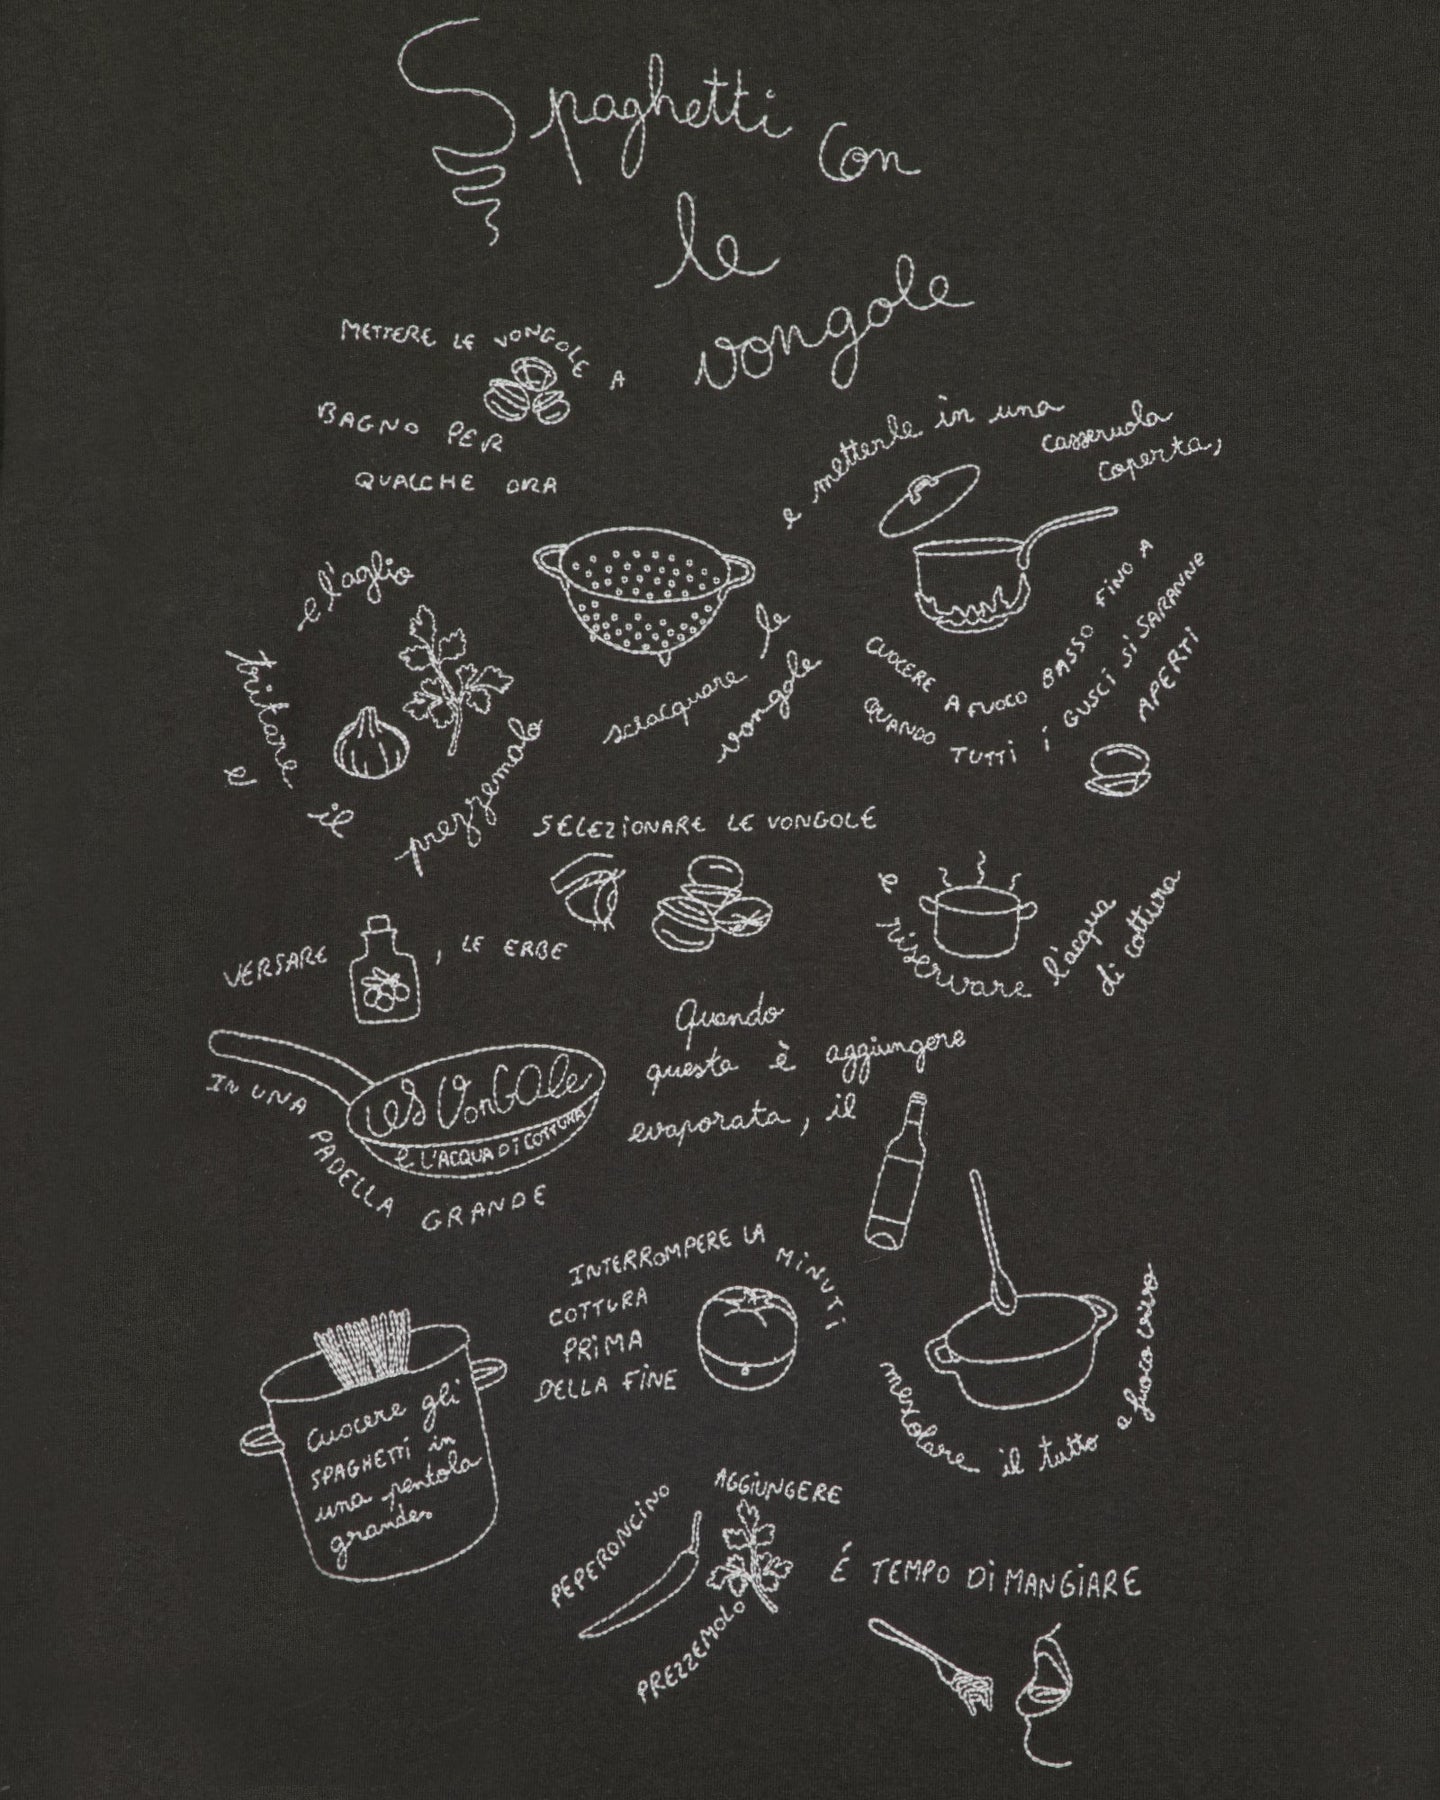 Spaghetti con
le
vongole
METTERE LE VONGOLE A
BAGNO PER
QUALCHE ORA
sciacquare le
vongole
e metterle in una
casseruola
coperta,
CUOCERE A FUOCO BASSO FINO A
QUANDO TUTTI i GUSCi Si SARANNE
APERTi
e l'aglio
tritare
e il
prezzemolo
SELEZiONARE LE VONGOLE
e riservare l'acqua
di cottura
VERSARE , LE ERBE
LES VONGOLe
e L'ACQUA Di COTTURA
IN UNA
PADELLA GRANDE
Quando
questa è aggiungere
evaporata, il
mexolare il tutto a fuoco vivo
Cuocere gli
SPAGHETTi in
una pentola
grande
INTERROMPERE LA MiNUTi
COTTURA
PRiMA
DELLA FiNE
AGGiUNGERE
PEPERONCiNO
PREZZEMOLO
É TEMPO Di MANGiARE